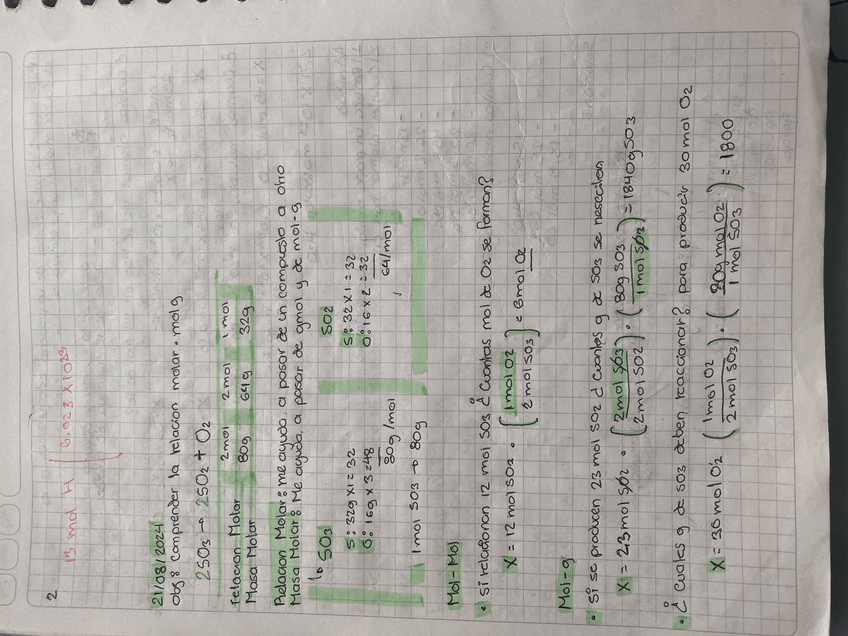 2
13 mol H ( 6.023 x 10 23
21/08/2024
Obj: Comprender la relacion molar. molg
2SO3 → 2SO2 + O2
relacion Molar 2mol 2mol 1mol
Masa Molar 80g 64g 32g
Relacion Molar: me ayuda a pasar de un compuesto a otro
Masa Molar: Me ayuda a pasar de gmol y de mol-g
SO3
S: 32g x 1 = 32
O: 16g x 3 = 48
80g/mol
1mol SO3 → 80g
SO2
S: 32 x 1 = 32
O: 16 x 2 = 32
64/mol
Mol-Mol
• Si relacionan 12 mol SO3 ¿Cuantas mol de O2 se forman?
X = 12 mol SO2 . ( 1mol O2 / 2mol SO3 ) = 6mol O2
Mol-g
• Si se producen 23 mol SO2 ¿Cuantos g de SO3 se nesecitan
X = 23 mol SO2 . ( 2mol SO3 / 2mol SO2 ) . ( 80g SO3 / 1mol SO3 ) = 1840g SO3
• ¿Cuales g de SO3 deben reaccionar? para producir 30 mol O2
X = 30 mol O2 ( 1mol O2 / 2mol SO3 ) . ( 80g mol O2 / 1 mol SO3 ) = 1800